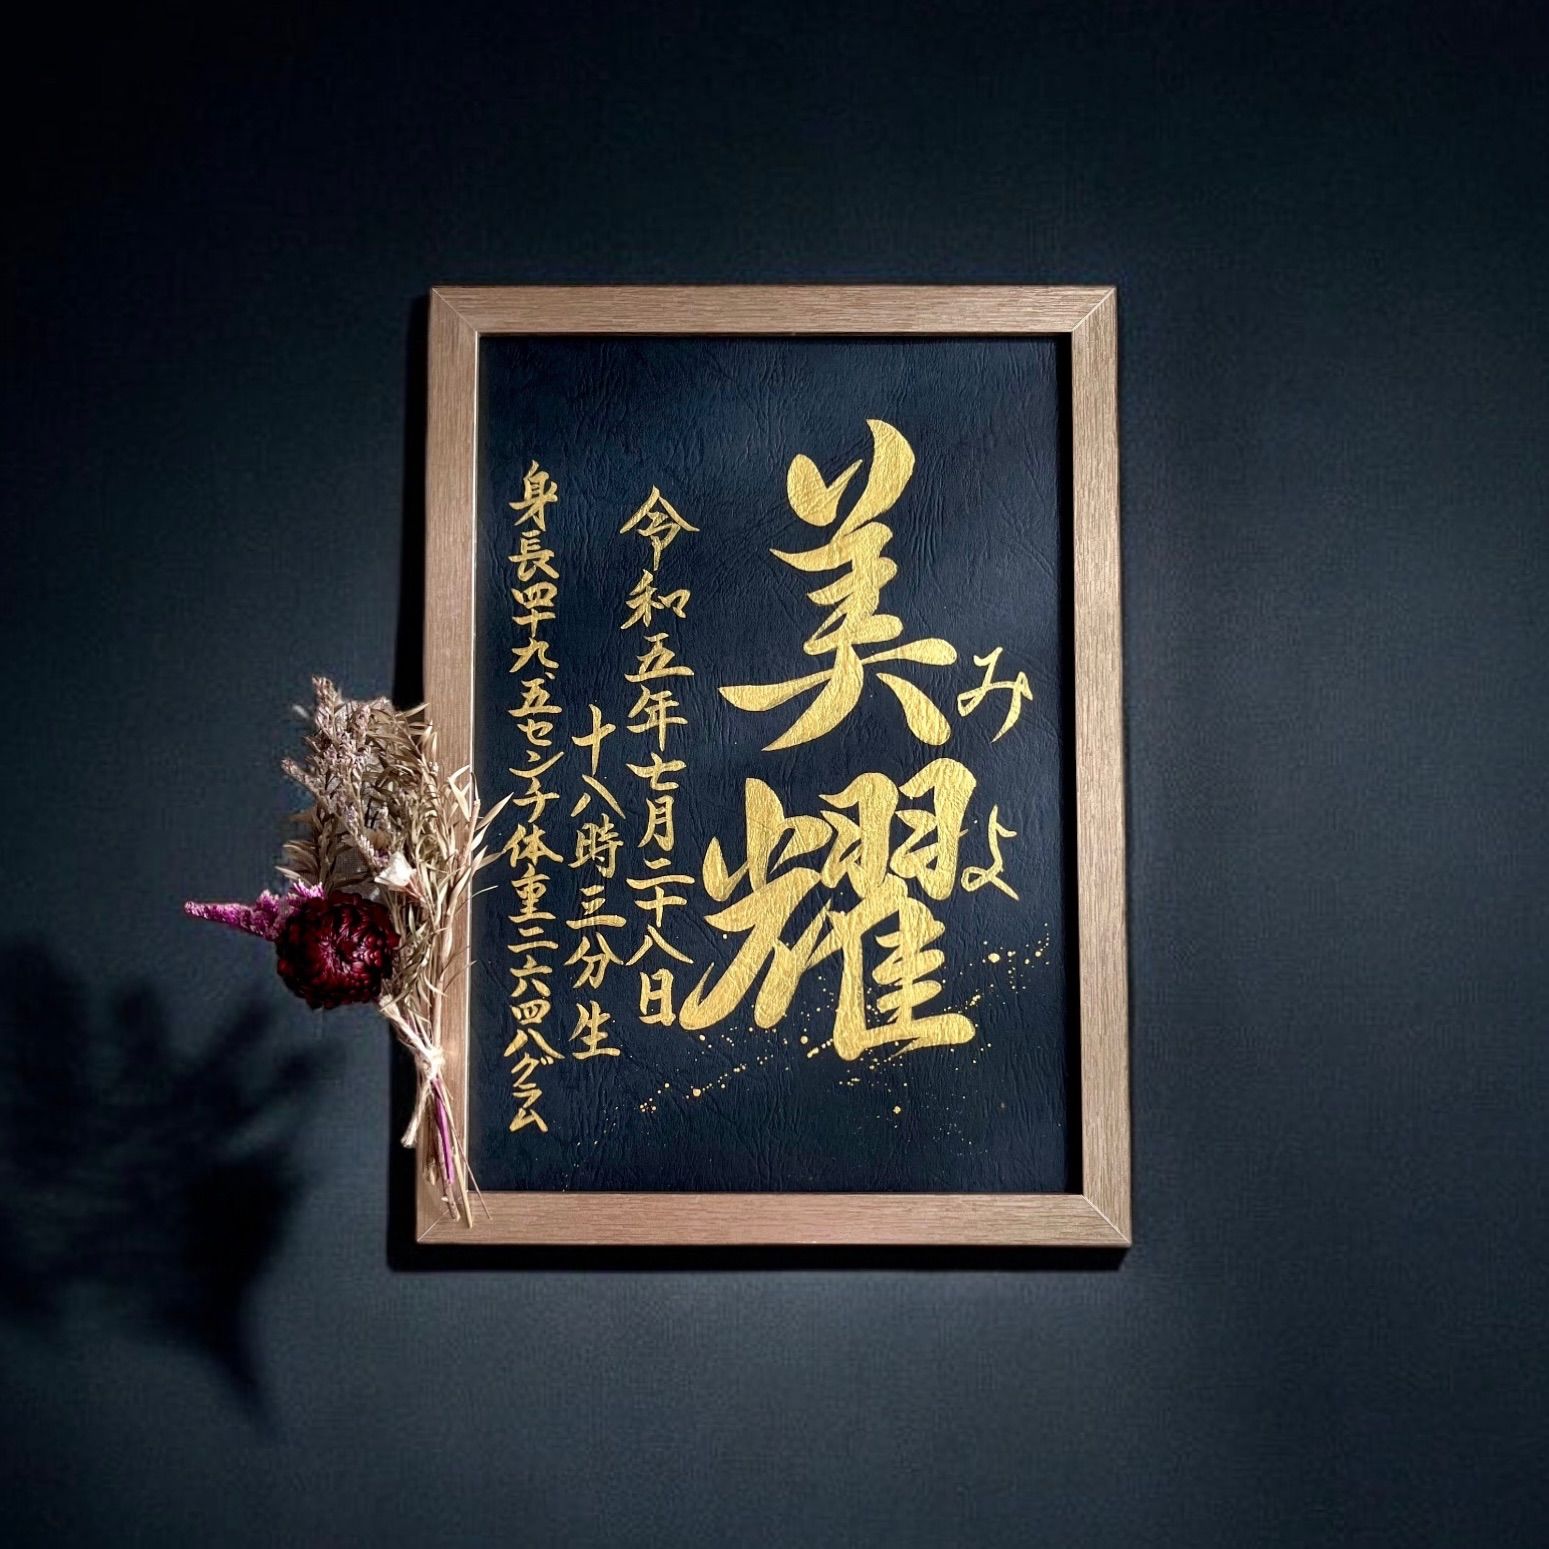 美耀
みよ
令和五年七月二十八日
十八時三分生
身長四十九、五センチ体重二六四八グラム